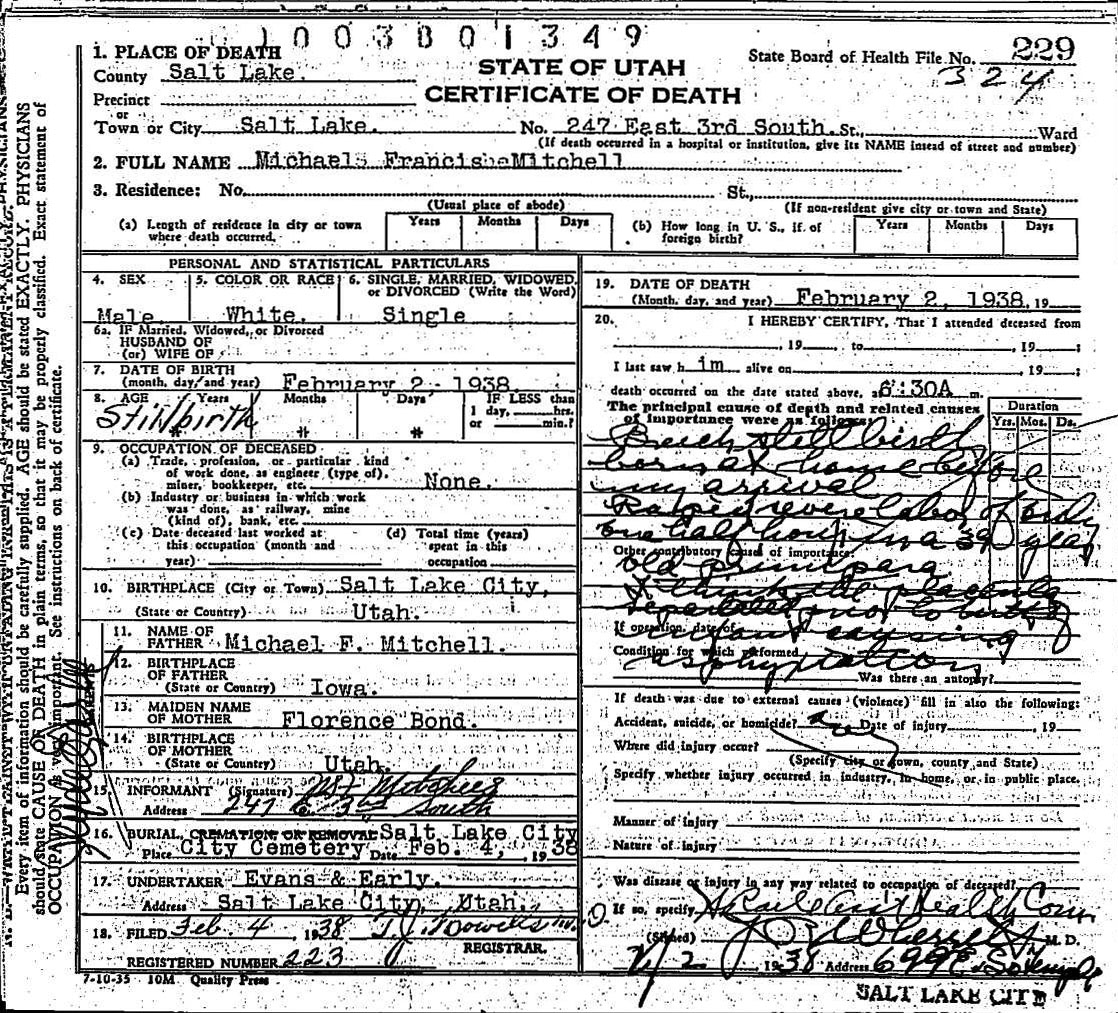 1003801349
1. PLACE OF DEATH
STATE OF UTAH
State Board of Health File No. 229
County Salt Lake.
324
CERTIFICATE OF DEATH
Precinct
or
Town or City Salt Lake. No. 247 East 3rd South. St., Ward
(If death occurred in a hospital or institution, give its NAME instead of street and number)
2. FULL NAME Michael Francis Mitchell
3. Residence: No. St.,
(Usual place of abode) (If non-resident give city or town and State)
(a) Length of residence in city or town where death occurred. Years Months Days
(b) How long in U. S., if of foreign birth? Years Months Days
PERSONAL AND STATISTICAL PARTICULARS
4. SEX 5. COLOR OR RACE 6. SINGLE, MARRIED, WIDOWED, or DIVORCED (Write the Word)
Male. White. Single
6a. IF Married, Widowed, or Divorced
HUSBAND OF
(or) WIFE OF
7. DATE OF BIRTH
(month, day and year) February 2 - 1938
8. AGE Years Months Days IF LESS than
1 day, hrs.
or min.?
Stillbirth
* * *
9. OCCUPATION OF DECEASED
(a) Trade, profession, or particular kind
of work done, as engineer (type of),
miner, bookkeeper, etc. None.
(b) Industry or business in which work
was done, as railway, mine
(kind of), bank, etc.
(c) Date deceased last worked at
this occupation (month and
year)
(d) Total time (years)
spent in this
occupation
10. BIRTHPLACE (City or Town) Salt Lake City,
(State or Country) Utah.
11. NAME OF
FATHER Michael F. Mitchell.
12. BIRTHPLACE
OF FATHER
(State or Country) Iowa.
13. MAIDEN NAME
OF MOTHER Florence Bond.
14. BIRTHPLACE
OF MOTHER
(State or Country) Utah.
15. INFORMANT (Signature) Mitchell
Address 247 E. 3rd South
16. BURIAL, CREMATION OR REMOVAL Salt Lake City
Place City Cemetery Date Feb. 4, 1938
17. UNDERTAKER Evans & Early.
Address Salt Lake City, Utah.
18. FILED Feb. 4 1938
REGISTRAR.
REGISTERED NUMBER 223
7-10-35 10M Quality Press
19. DATE OF DEATH
(Month, day, and year) February 2, 1938, 19
20. I HEREBY CERTIFY, That I attended deceased from
, 19 ; to , 19 ;
I last saw h im alive on , 19 ;
death occurred on the date stated above, at 6:30A m.
The principal cause of death and related causes
of importance were as follows:
Duration
Yrs. Mos. Ds.
Breech stillbirth
born at home before
my arrival
Rapid severe labor of only
one half hour in a 39 year
Other contributory causes of importance:
old primipara
I think the placenta
separated prior to birth of
If operation, date of
infant causing
Condition for which performed
asphyxiation
Was there an autopsy?
If death was due to external causes (violence) fill in also the following:
Accident, suicide, or homicide? Date of injury , 19
Where did injury occur?
(Specify city or town, county and State)
Specify whether injury occurred in industry, in home, or in public place.
Manner of injury
Nature of injury
Was disease or injury in any way related to occupation of deceased?
If so, specify
(Signed) M. D.
2/2 1938 Address 699 E. So. Temple
SALT LAKE CITY
Every item of information should be carefully supplied. AGE should be stated EXACTLY. PHYSICIANS
should state CAUSE OF DEATH in plain terms, so that it may be properly classified. Exact statement of
OCCUPATION is very important. See instructions on back of certificate.